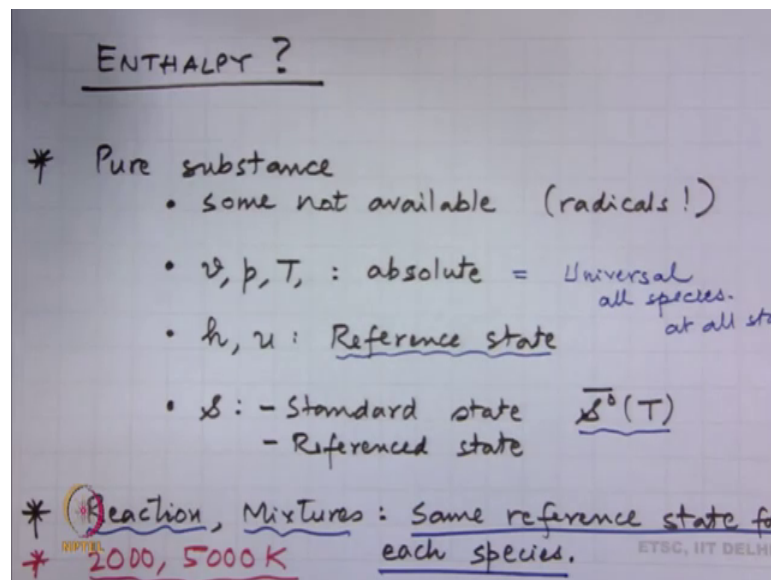 ENTHALPY ?
* Pure substance
• some not available (radicals !)
• v, p, T, : absolute = Universal
all species.
at all sta
• h, u : Reference state
• s : - Standard state s̄°(T)
- Referenced state
* Reaction, Mixtures : Same reference state fo
* 2000, 5000 K each species.
NPTEL
ETSC, IIT DELH